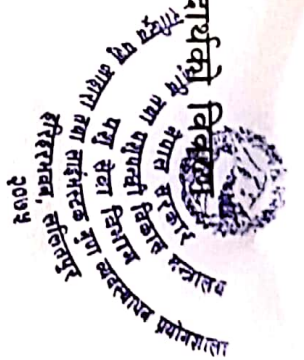 नेपाल सरकार
कृषि तथा पशुपन्छी विकास मन्त्रालय
पशु सेवा विभाग
राष्ट्रिय पशु आहारा तथा लाईभस्टक गुण व्यवस्थापन प्रयोगशाला
हरिहरभवन, ललितपुर
२०७५